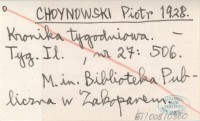 CHOYNOWSKI Piotr 1928.
Kronika tygodniowa. –
Tyg. Il., nr 27: 506.
M.in. Biblioteka Pub-
liczna w Zakopanem.